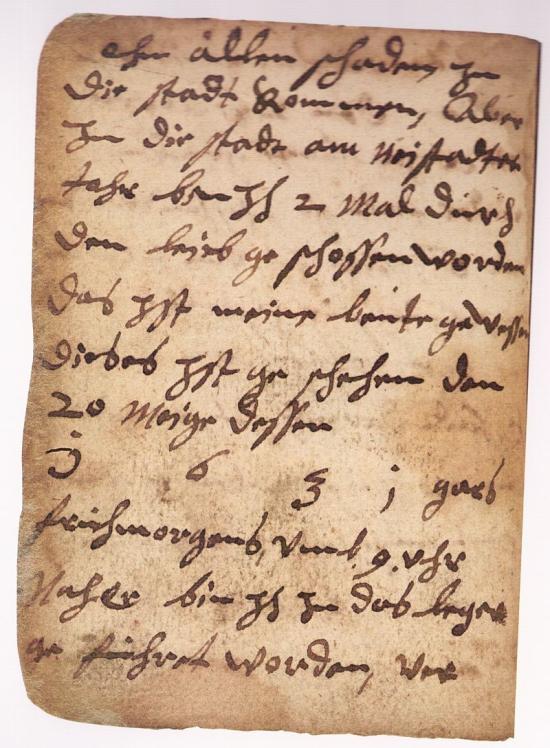 ohn allen schaden, In
die stadt kommen, Aber
In die stadt am neistadter
tohr bin Ich 2 Mal durch
den leieb ge schossen worden
das Ist meine beute gewessen
dieses Ist ge schehen den
20 Meige dessen
1 6 3 1 gars
frichmorgens, vmb 9. vhr
Nacher bin Ich In das leger
ge fuhret worden, ver